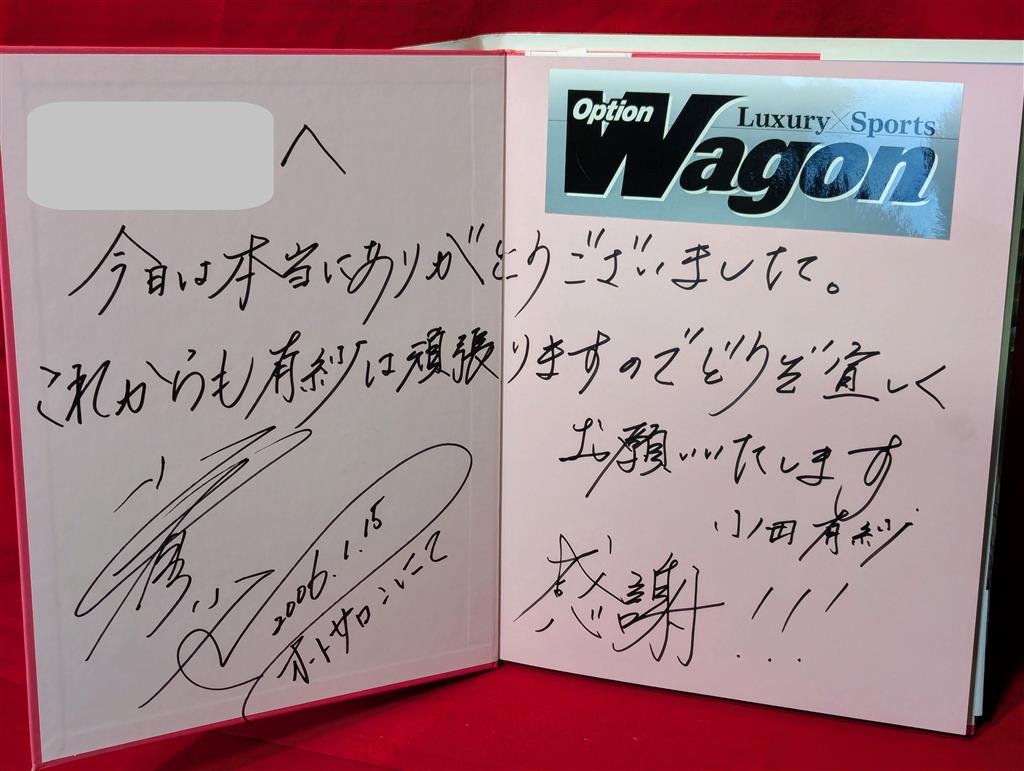 へ
Option Wagon
Luxury×Sports
今日は本当にありがとうございました。
これからも有紗は頑張りますのでどうぞ宜しく
お願いいたします
小田有紗
感謝!!!...
2006.1.15
オートサロンにて